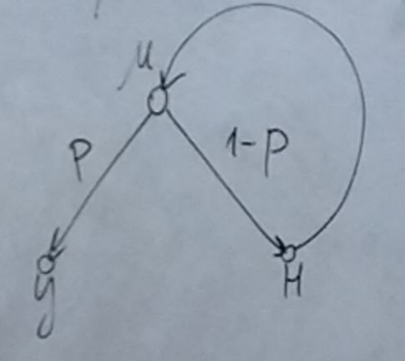 И
p
1-p
У
Н